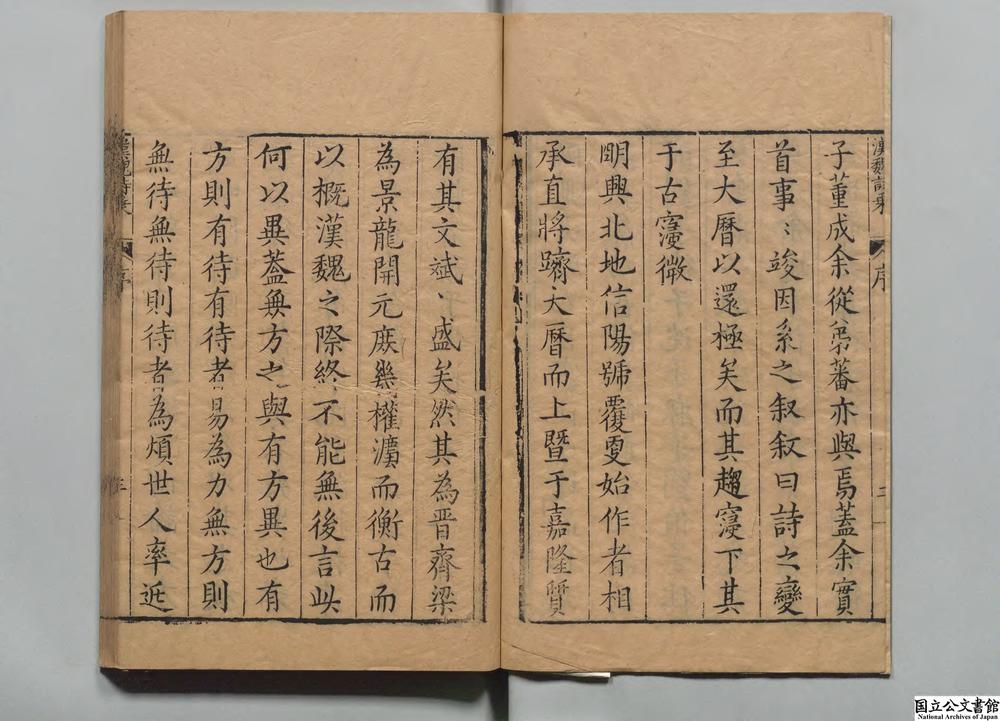 漢魏詩乘
序
子董成余從弟蕃亦與焉蓋余實
首事〻竣因系之叙叙曰詩之變
至大曆以還極矣而其趨寖下其
于古寖微
明興北地信陽號覆夏始作者相
承直將躋大曆而上暨于嘉隆質
有其文斌〻盛矣然其為晋齊梁
為景龍開元庶幾權瀆而衡古而
以概漢魏之際終不能無後言此
何以異蓋無方之與有方異也有
方則有待有待者易為力無方則
無待無待則待者為煩世人率近
序
国立公文書館
National Archives of Japan